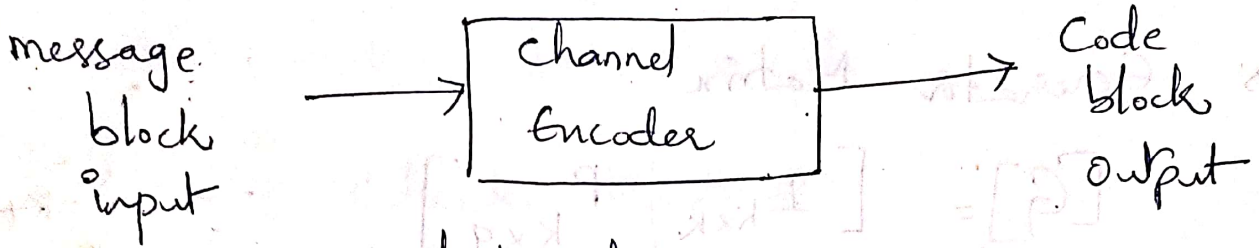 message
block
input
Channel
Encoder
Code
block
output